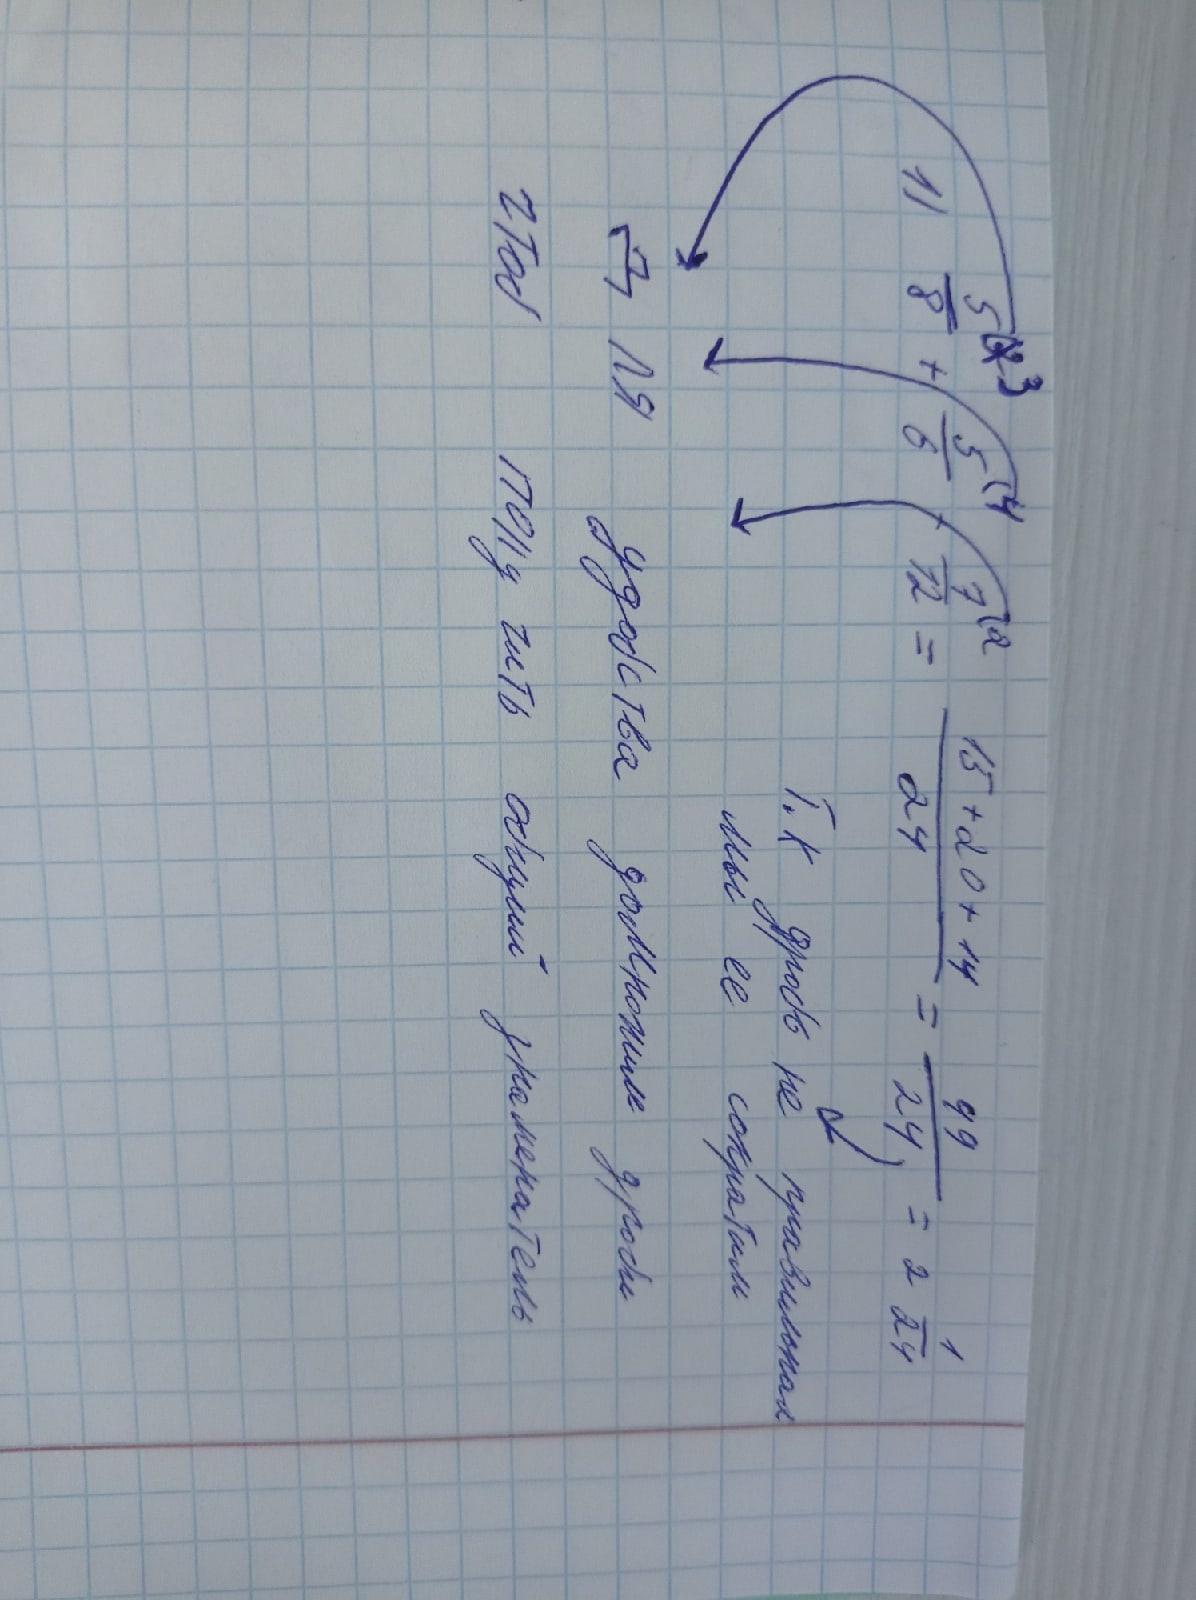 1) 5(3/8 + 5(4/6 + 7(2/12 = 15+20+14/24 = 49/24 = 2 1/24
т.к дробь не правильная
мы ее сократим
Для удобства домножим дроби
чтоб получить общий знаменатель